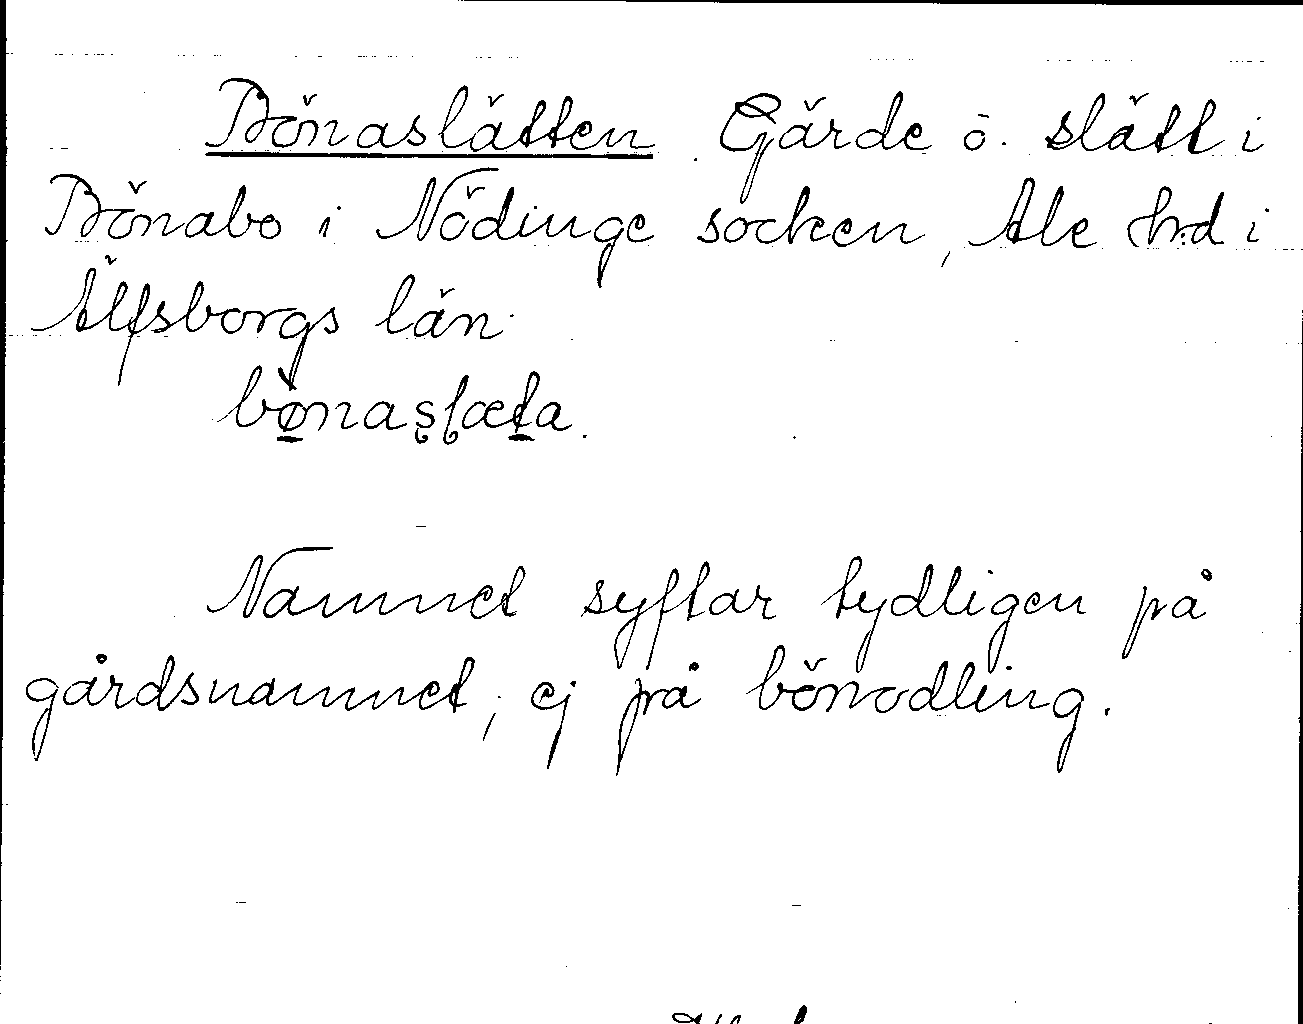 Bönaslätten. Gärde o. slätt i
Bönabo i Nödinge socken, Ale hd i
Älfsborgs län.
bø̀naslæta.
Namnet syftar tydligen på
gårdsnamnet, ej på bönodling.